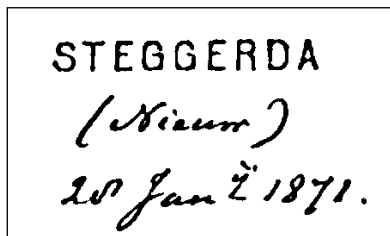 STEGGERDA
(Nieuw)
28 Jan ÿ 1871.